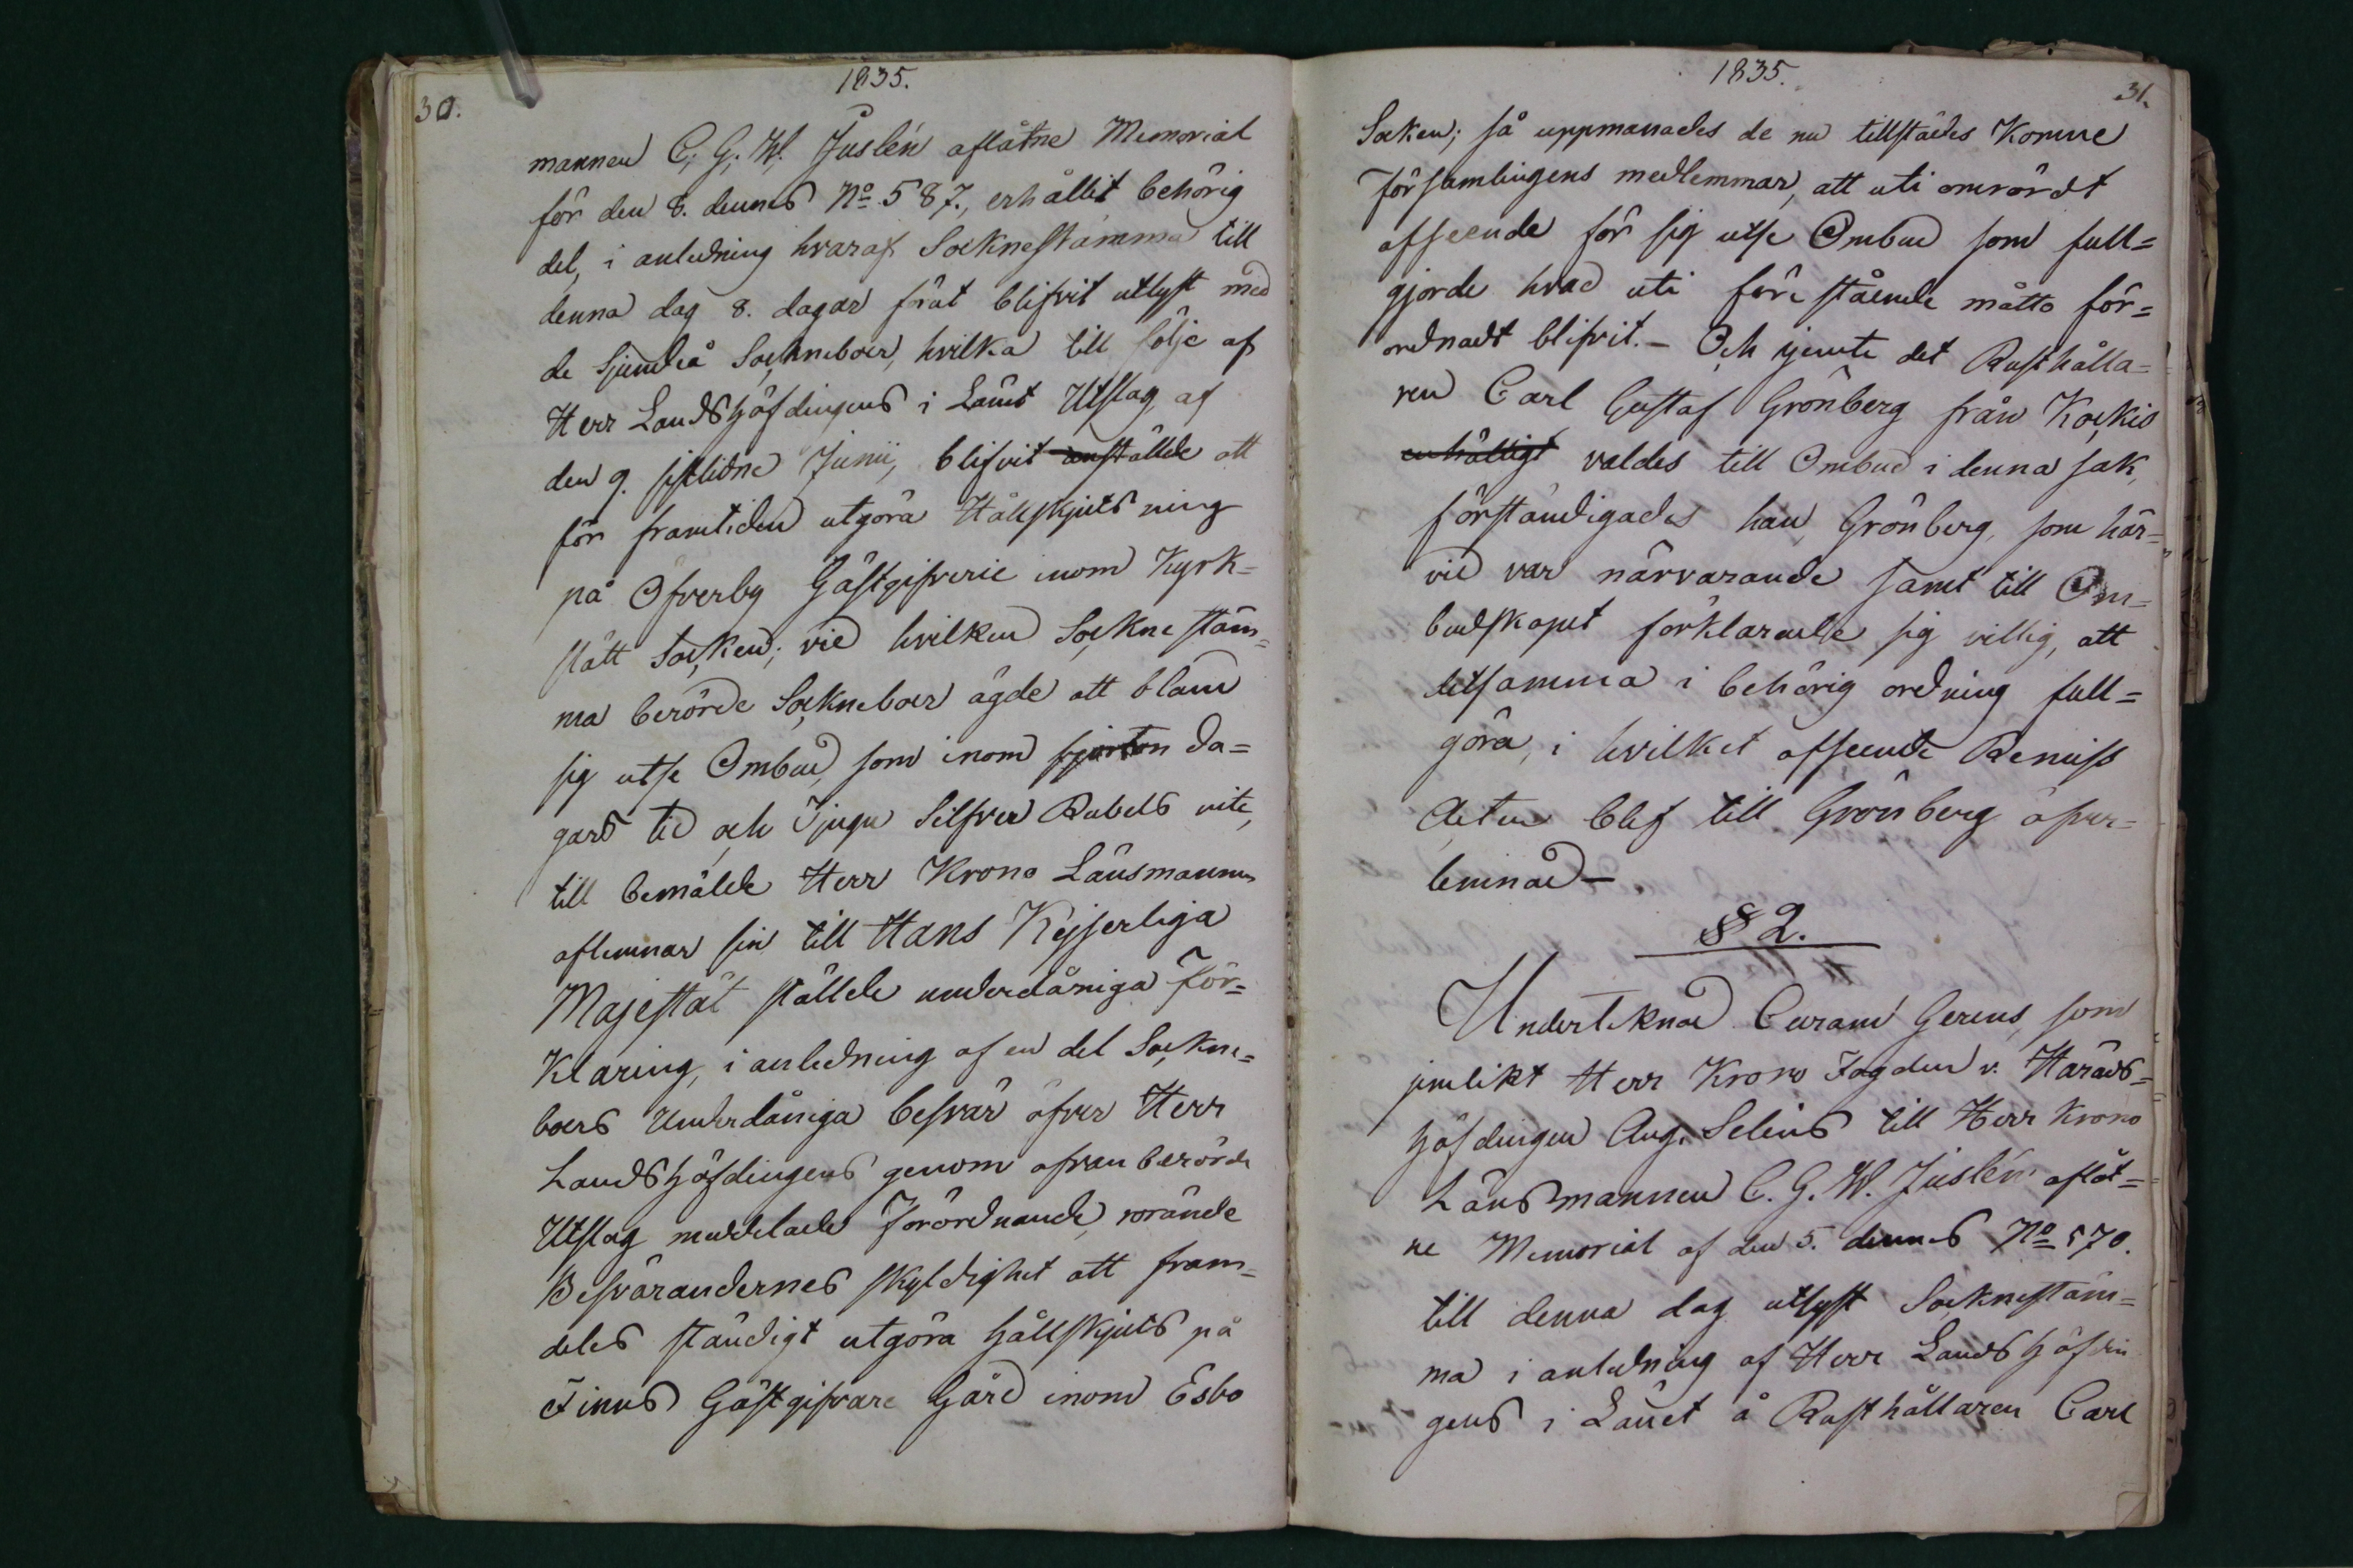 1835.
30.
mannen C. G. W. Juslén aflåtne Memorial
för den 8. dennes No 587., erhållit behörig
del, i anledning hvaraf Socknestämma till
denna dag 8. dagar förut blifvit utlyst med
de Sjundeå Sockneboer, hvilka till följe af
Herr Landshöfdingens i Länet Utslag af
den 9. sistlidne Junii, blifvit anstälde att
för framtiden utgöra Hållskjutsning
på Öfverby Gästgifverie inom Kyrk-
slätt Socken; vid hvilken Sockne stäm-
ma berörde Sockneboer ägde att bland
sig utse Ombud, som inom fjorton da-
gars tid och Tjugu Silfver Rubels vite,
till bemälde Herr Krono Länsmannen
aflemnar sin till Hans Kejserliga
Majestät stälde underdåniga För-
klaring, i anledning af en del Sockne-
boers Underdåniga besvär öfver Herr
Landshöfdingens genom ofvanberörde
Utslag meddelade Förordnande, rörande
Besvärandernes skyldighet att fram-
deles ständigt utgöra hållskjuts på
Finns Gästgifvare Gård inom Esbo
1835.
31.
Socken; så uppmanades de nu tillstädes Komne
Församlingens medlemmar, att uti omrördt
afseende för sig utse Ombud som full=
gjorde hvad uti föreståeende måtto för=
ordnadt blifvit. – Och jemte det Rusthålla=
ren Carl Gustaf Grönberg från Kockis
enhälligt valdes till Ombud i denna sak,
förständigades han, Grönberg, som här=
vid var närvarande samt till Om-
budskapet förklarade sig villig, att
detsamma i behörig ordning full=
göra, i hvilket afseende Remiss
Acten blef till Grönberg öfver=
lemnad –
§ 2.
Undertecknad Curam Gerens, som
jemlikt Herr Krono Fogden v. Härads-
höfdingen Aug. Selins till Herr Krono
Länsmannen C. G. W. Juslén aflåt=
ne Memorial af den 5. dennes No 570.
till denna dag utlyst Socknestäm=
ma i anledning af Herr Landshöfdin
gens i Länet å Rusthållaren Carl